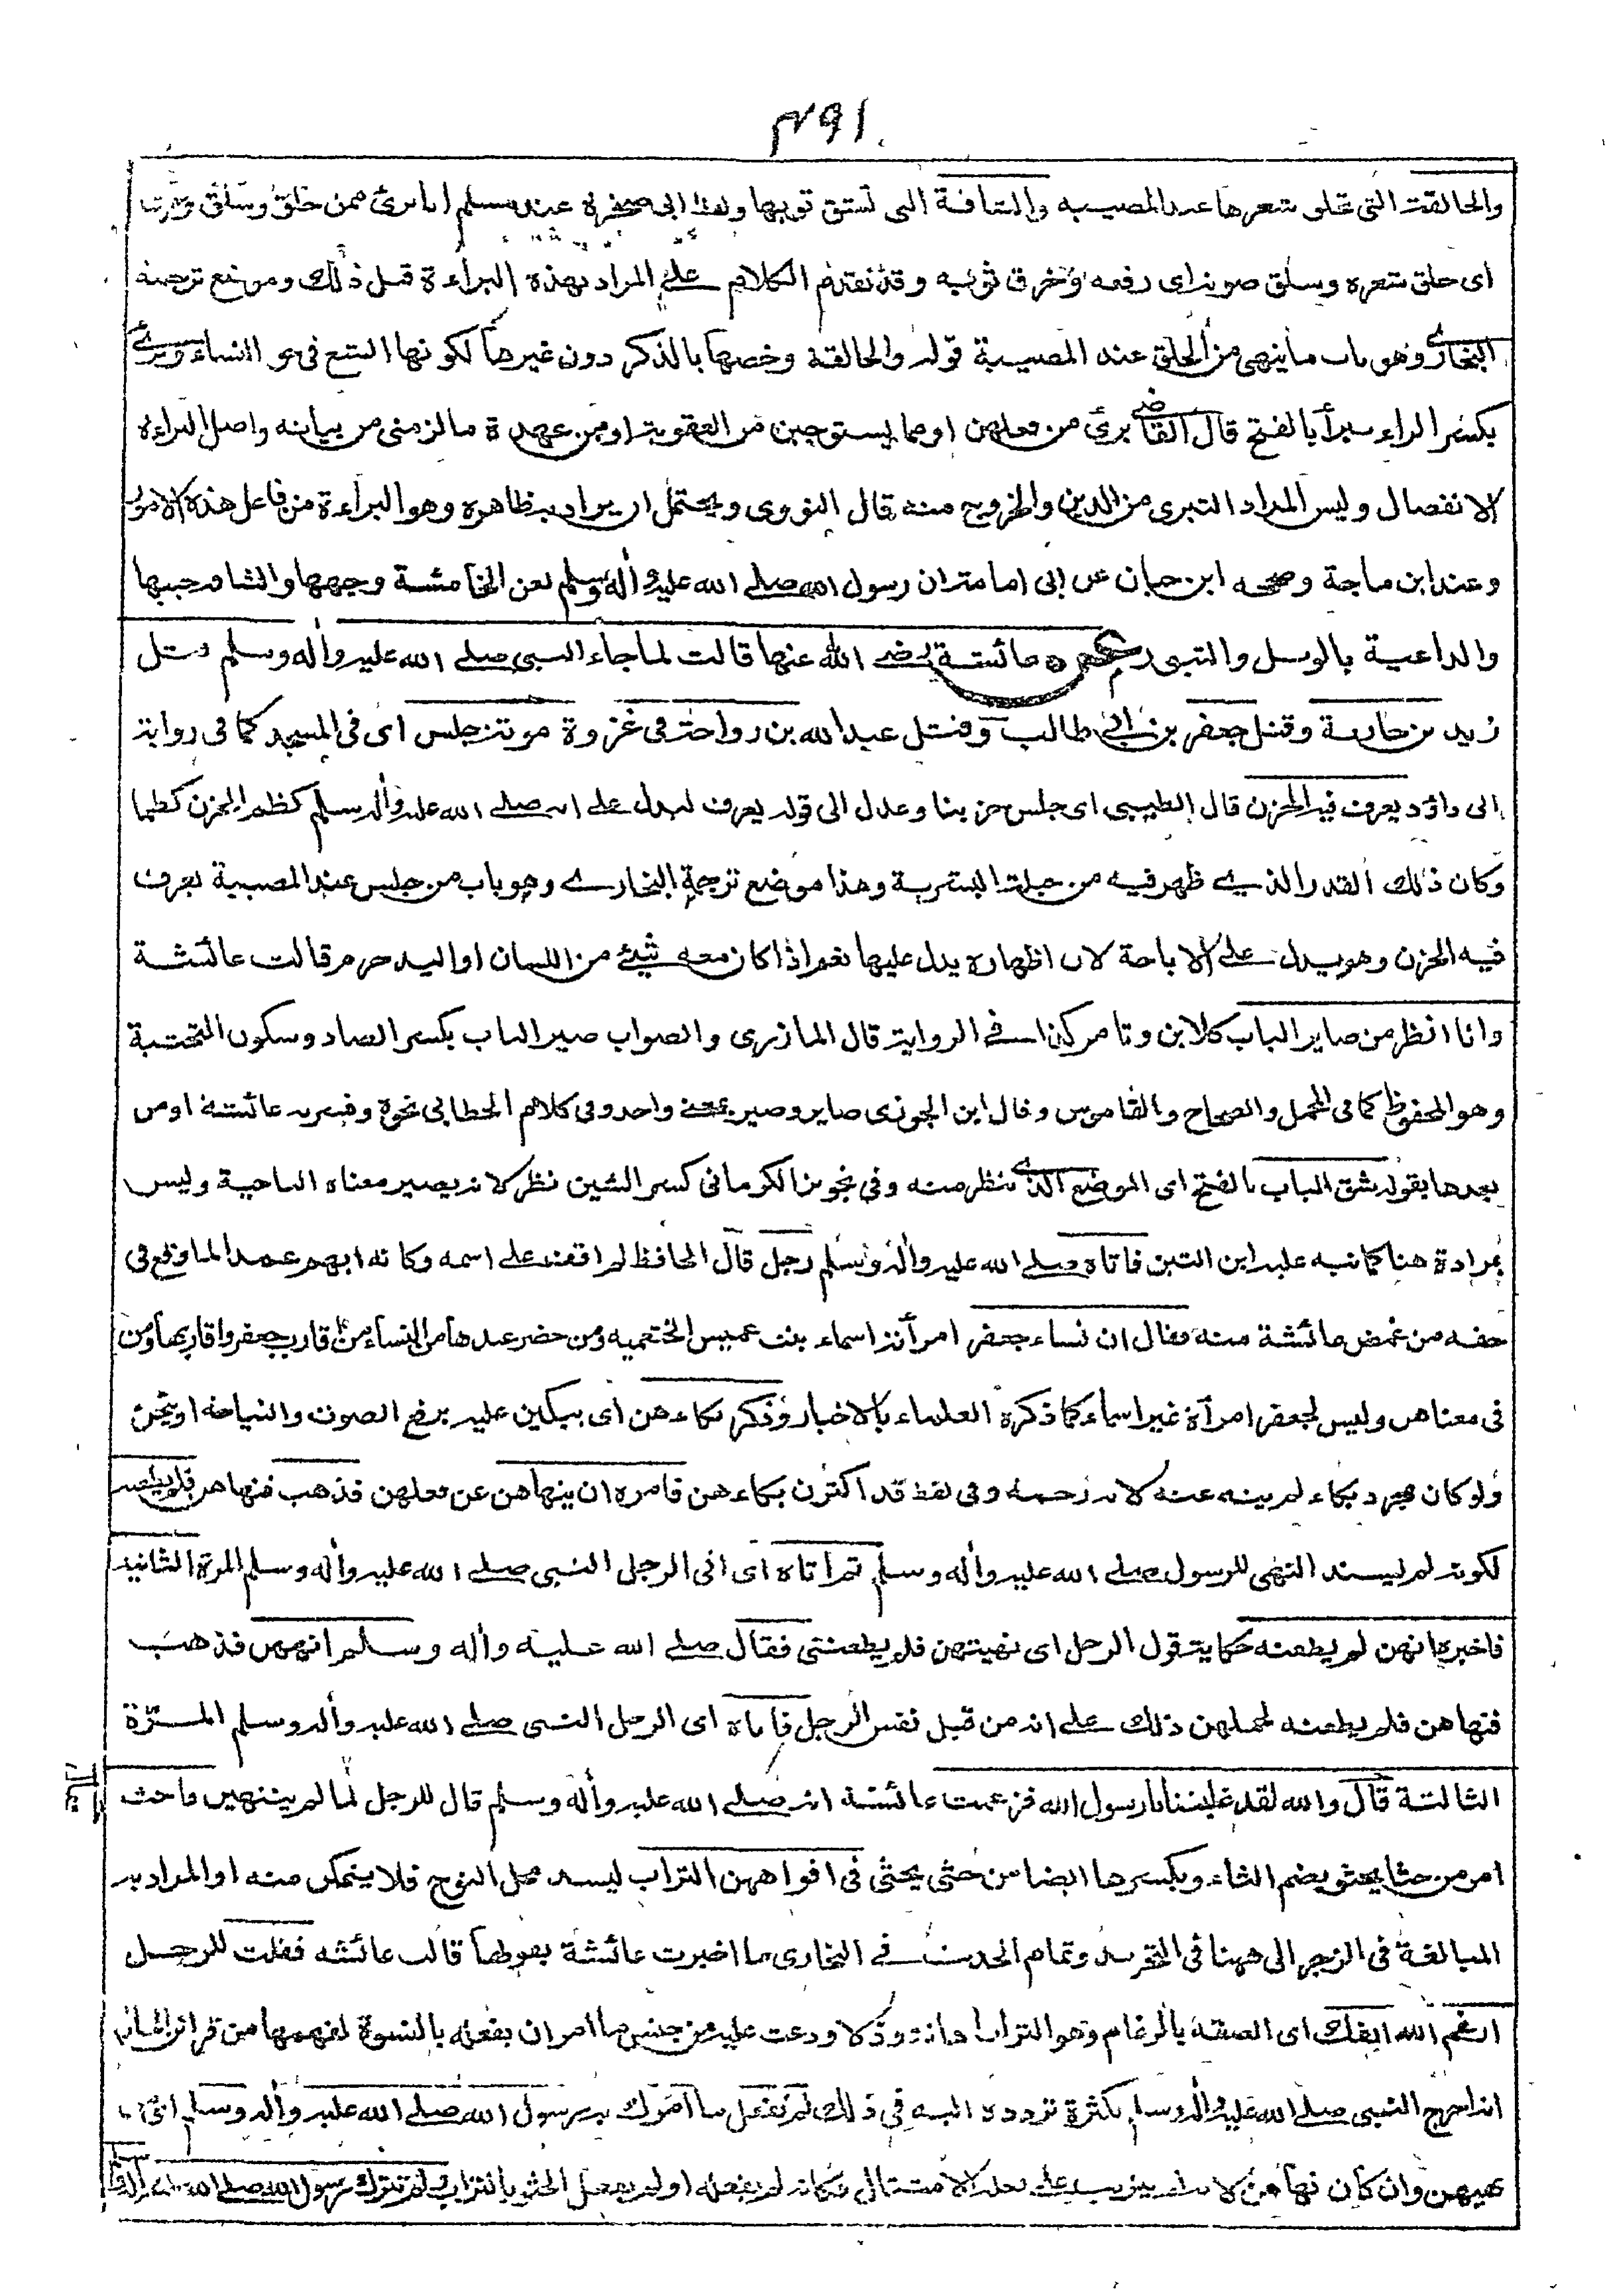 ٣٩١
والحالقة التى تحلق شعرها عند المصيبه والشاقة التى تشق ثوبها ولفظ ابى صخرة عند مسلم انا برئ ممن حلق وسلق وخرق
اى حلق شعره وسلق صوته اى رفعه وخرق ثوبه وقد تقدم الكلام على المراد بهذه البراءة قبل ذلك وموضع ترجمة
البخارى وهو باب ما ينهى من الحلق عند المصيبة قوله والحالقة وخصها بالذكر دون غيرها لكونها ابشع فى حق النساء وبرئ
بكسر الراء يبرأ بالفتح قال القاضى برئ من فعلهن او مما يستوجبن من العقوبة او من عهدة ما لزمنى من بيانه واصل البراءة
الانفصال وليس المراد التبرى من الدين والخروج منه قال النووى ويحتمل ان يراد به ظاهره وهو البراءة من فاعل هذه الامور
وعند ابن ماجة وصححه ابن حبان عن ابى امامة ان رسول الله صلى الله عليه وأله وسلم لعن الخامشة وجهها والشاقة جيبها
والداعية بالويل والثبور عن عائشة رضى الله عنها قالت لما جاء النبى صلى الله عليه وأله وسلم قتل
زيد بن حارثة وقتل جعفر بن ابى طالب وقتل عبد الله بن رواحة فى غزوة موتة جلس اى فى المسجد كما فى رواية
ابى داؤد يعرف فيه الحزن قال الطيبى اى جلس حزينا وعدل الى قوله يعرف ليدل على انه صلى الله عليه وأله وسلم كظم الحزن كظما
وكان ذلك القدر الذى ظهر فيه من جبلة البشرية وهذا موضع ترجمة البخارى وهو باب من جلس عند المصيبة يعرف
فيه الحزن وهو يدل على الاباحة لان اظهاره يدل عليها نعم اذا كان معه شئ من اللسان او اليد حرم قالت عائشة
وانا انظر من صاير الباب كلابن وتامر كذا فى الرواية قال المازرى والصواب صير الباب بكسر الصاد وسكون التحتية
وهو المحفوظ كما فى المجمل والصحاح والقاموس وقال ابن الجوزى صاير وصير بمعنى واحد وفى كلام الخطابى نحوه وفسرته عائشة او من
بعدها بقوله شق الباب بالفتح اى الموضع الذى تنظر منه وفى تجويز الكرمانى كسر الشين نظر لانه يصير معناه الناحية وليس
بمرادة هنا كما نبه عليه ابن التين فاتاه صلى الله عليه وأله وسلم رجل قال الحافظ لم اقف على اسمه وكانه ابهم عمدا لما وقع فى
حقه من غمض عائشة منه فقال ان نساء جعفر امرأته اسماء بنت عميس الخثعميه ومن حضر عندها من النساء من اقارب جعفر واقاربها ومن
فى معناهن وليس لجعفر امرأة غير اسماء كما ذكره العلماء بالاخبار وذكر بكاءهن اى يبكين عليه برفع الصوت والنياحة او ينحن
ولو كان مجرد بكاء لم ينه عنه لانه رحمة وفى لفظ قد اكثرن بكاءهن فامره ان ينهاهن عن فعلهن فذهب فنهاهن فلم يطعنه
لكونه لم يسند النهى للرسول صلى الله عليه وأله وسلم ثم اتاه اى اتى الرجل النبى صلى الله عليه وأله وسلم المرة الثانية
فاخبره انهن لم يطعنه حكاية قول الرجل اى نهيتهن فلم يطعننى فقال صلى الله عليه وأله وسلم انههن فذهب
فنهاهن فلم يطعنه لحملهن ذلك على انه من قبل نفس الرجل فاتاه اى الرجل النبى صلى الله عليه وأله وسلم المرة
الثالثة قال والله لقد غلبننا يا رسول الله فزعمت عائشة انه صلى الله عليه وأله وسلم قال للرجل لما لم ينتهين فاحث
امر من حثا يحثو بضم الثاء وبكسرها ايضا من حثى يحثى فى افواههن التراب ليسد محل النوح فلا يتمكن منه او المراد به
المبالغة فى الزجر الى ههنا فى التجريد وتمام الحديث فى البخارى ما اخبرت عائشة بقولها قالت عائشه فقلت للرجل
ارغم الله انفك اى الصقه بالرغام وهو التراب اهانة وذلا ودعت عليه من جنس ما امر ان يفعله بالنسوة لفهمها من قرائن الحال
انه احرج النبى صلى الله عليه وأله وسلم بكثرة تردده اليه فى ذلك لم تفعل ما امرك به رسول الله صلى الله عليه وأله وسلم اى من
نهيهن وان كان نهاهن لانه لم يترتب على فعله الامتثال فكانه لم يفعله او لم يفعل الحثو بالتراب ولم تترك رسول الله صلى الله عليه وأله